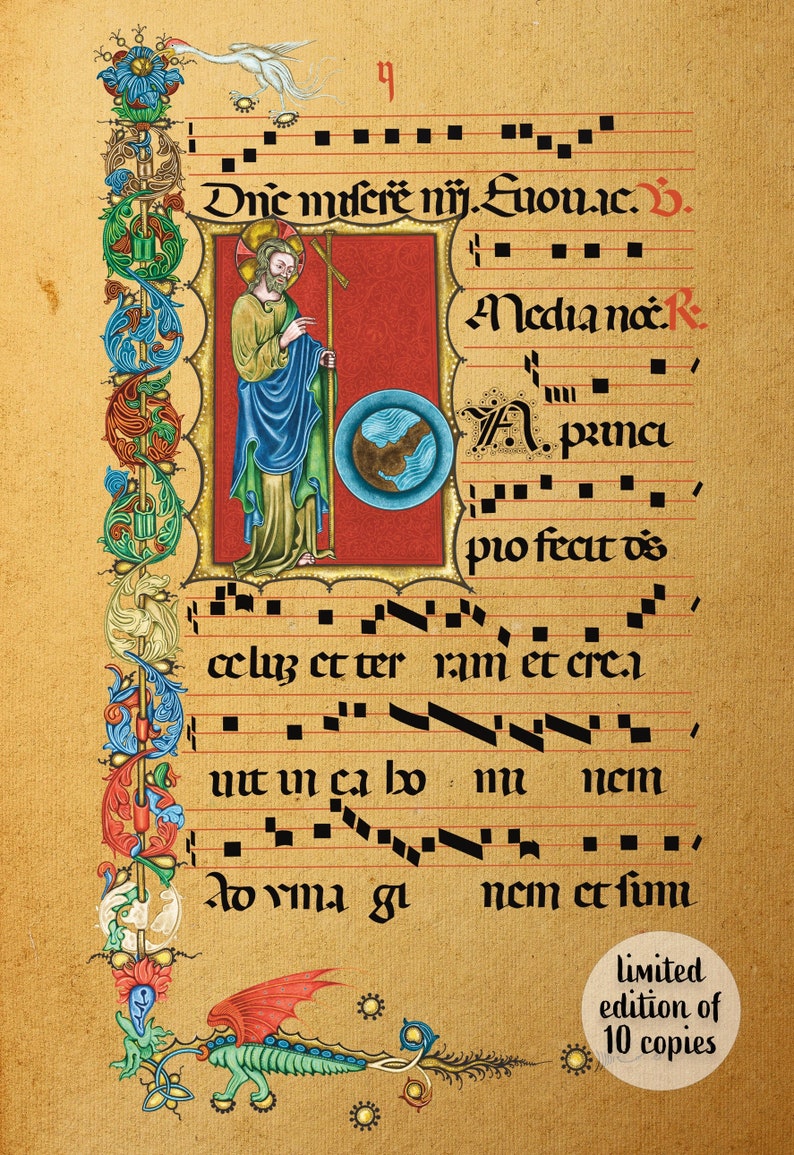 Dn̄e miserē mīj. Euouae. V̄.
Media noc̄. R.
A princi
pio fecit dēs
celuz et ter ram et crea
uit in ea ho mi nem
Ad yma gi nem et simi
limited
edition of
10 copies